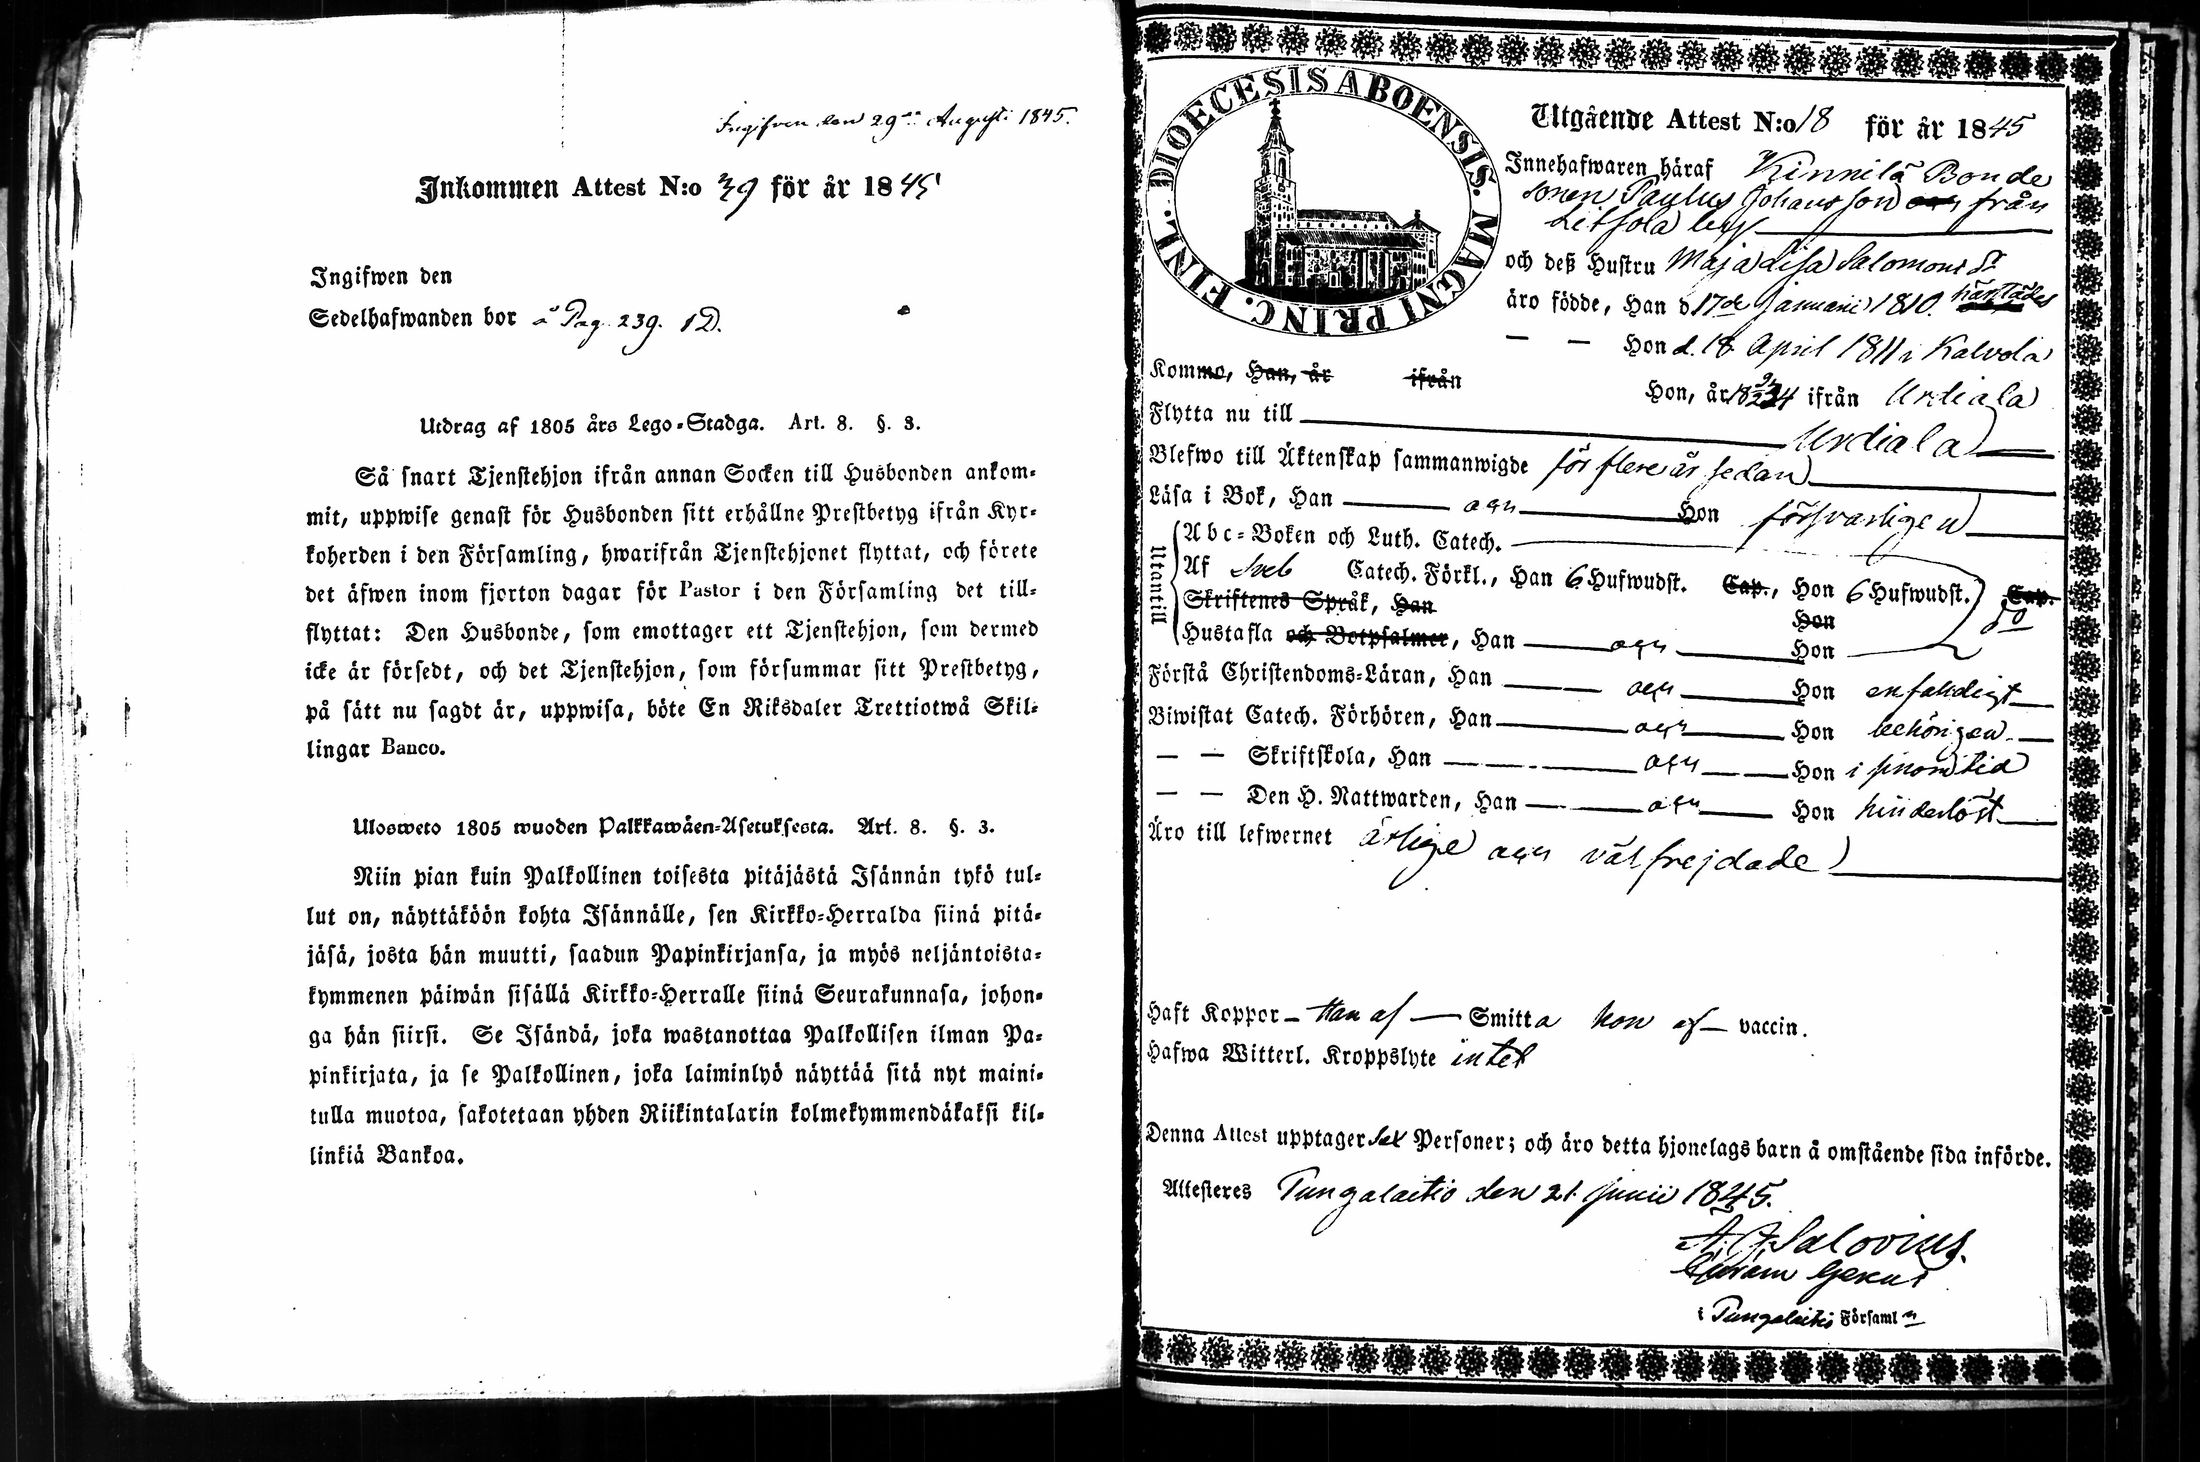 Ingifven den 29de Augusti 1845.
Inkommen Attest N:o 39 för år 1845
Ingifwen den
Sedelhafwanden bor å Pag. 239. 1D.
Utdrag af 1805 års Lego-Stadga. Art. 8. §. 3.
Så snart Tjenstehjon ifrån annan Socken till Husbonden ankom-
mit, uppwise genast för Husbonden sitt erhållne Prestbetyg ifrån Kyr-
koherden i den Församling, hwarifrån Tjenstehjonet flyttat, och förete
det äfwen inom fjorton dagar för Pastor i den Församling det till-
flyttat: Den Husbonde, som emottager ett Tjenstehjon, som dermed
icke är försedt, och det Tjenstehjon, som försummar sitt Prestbetyg,
på sätt nu sagdt är, uppwisa, böte En Riksdaler Trettiotwå Skil-
lingar Banco.
Uloswеto 1805 wuoden Palkkawäen-Asetuksesta. Art. 8. §. 3.
Niin pian kuin Palkollinen toisesta pitäjästä Isännän tykö tul-
lut on, näyttäköön kohta Isännälle, sen Kirkko-Herralda siinä pitä-
jäsä, josta hän muutti, saadun Papinkirjansa, ja myös neljäntoista-
kymmenen päiwän sisällä Kirkko-Herralle siinä Seurakunnasa, johon-
ga hän siirsi. Se Isändä, joka wastanottaa Palkollisen ilman Pa-
pinkirjata, ja se Palkollinen, joka laiminlyö näyttää sitä nyt maini-
tulla muotoa, sakotetaan yhden Riikintalarin kolmekymmendäkaksi kil-
linkiä Bankoa.
DIOECESIS ABOENSIS. MAGNI PRINC. FINL.
Utgående Attest N:o 18 för år 1845
Innehafwaren häraf Kinnilä Bonde
sonen Paulus Johansson och från
by
och deß Hustru Maja Lisa Salomons Dr
äro födde, Han d 17de Januari 1810. härstädes
— — Hon d. 18 April 1811 i Kalvola
Kommo, Han, år ifrån Hon, år ifrån Urdiala
Flytta nu till Urdiala
Blefwo till Äktenskap sammanwigde för flere år sedan
Läsa i Bok, Han och Hon försvarligen
Utantill
Abc-Boken och Luth. Catech.
Af Sveb Catech. Förkl., Han 6 Hufwudst. Cap., Hon 6 Hufwudst. Cap.
Skriftenes Språk, Han Hon
Hustafla och Botpsalmer, Han och Hon
Förstå Christendoms-Läran, Han och Hon enfaldigt
Biwistat Catech. Förhören, Han och Hon behörigen
— — Skriftskola, Han och Hon i sinom tid
— — Den H. Nattwarden, Han och Hon hinderlöst
Äro till lefwernet ärlige och välfrejdade
Haft Koppor – Han af — Smitta hon af – vaccin.
Hafwa Witterl. Kroppslyte intet
Denna Attest upptager sex Personer; och äro detta hjonelags barn å omstående sida införde.
Attesteres Pungalaitio den 21. Junii 1845.
A. J. Salovius.
i Pungalaitio Församl n